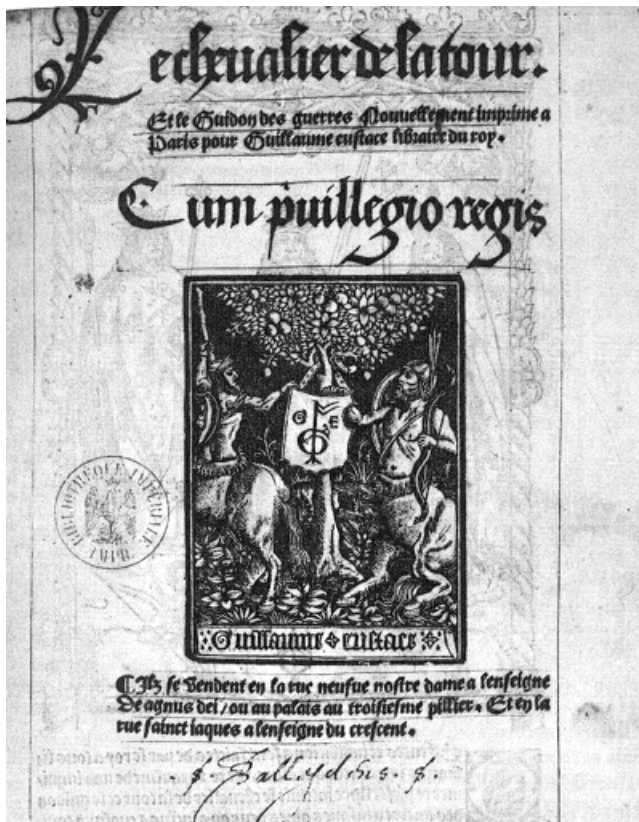 Le cheualier de la tour.
Et le Guidon des guerres Nouuellement imprime a
Paris pour Guillaume eustace libraire du roy.
Cum puillegio regis
G E
Guillaume eustace
Ilz se vendent en la rue neufue nostre dame a lenseigne
De agnus dei / ou au palais au troisiesme pillier. Et en la
rue sainct iaques a lenseigne du crescent.
BIBLIOTHEQUE IMPERIALE